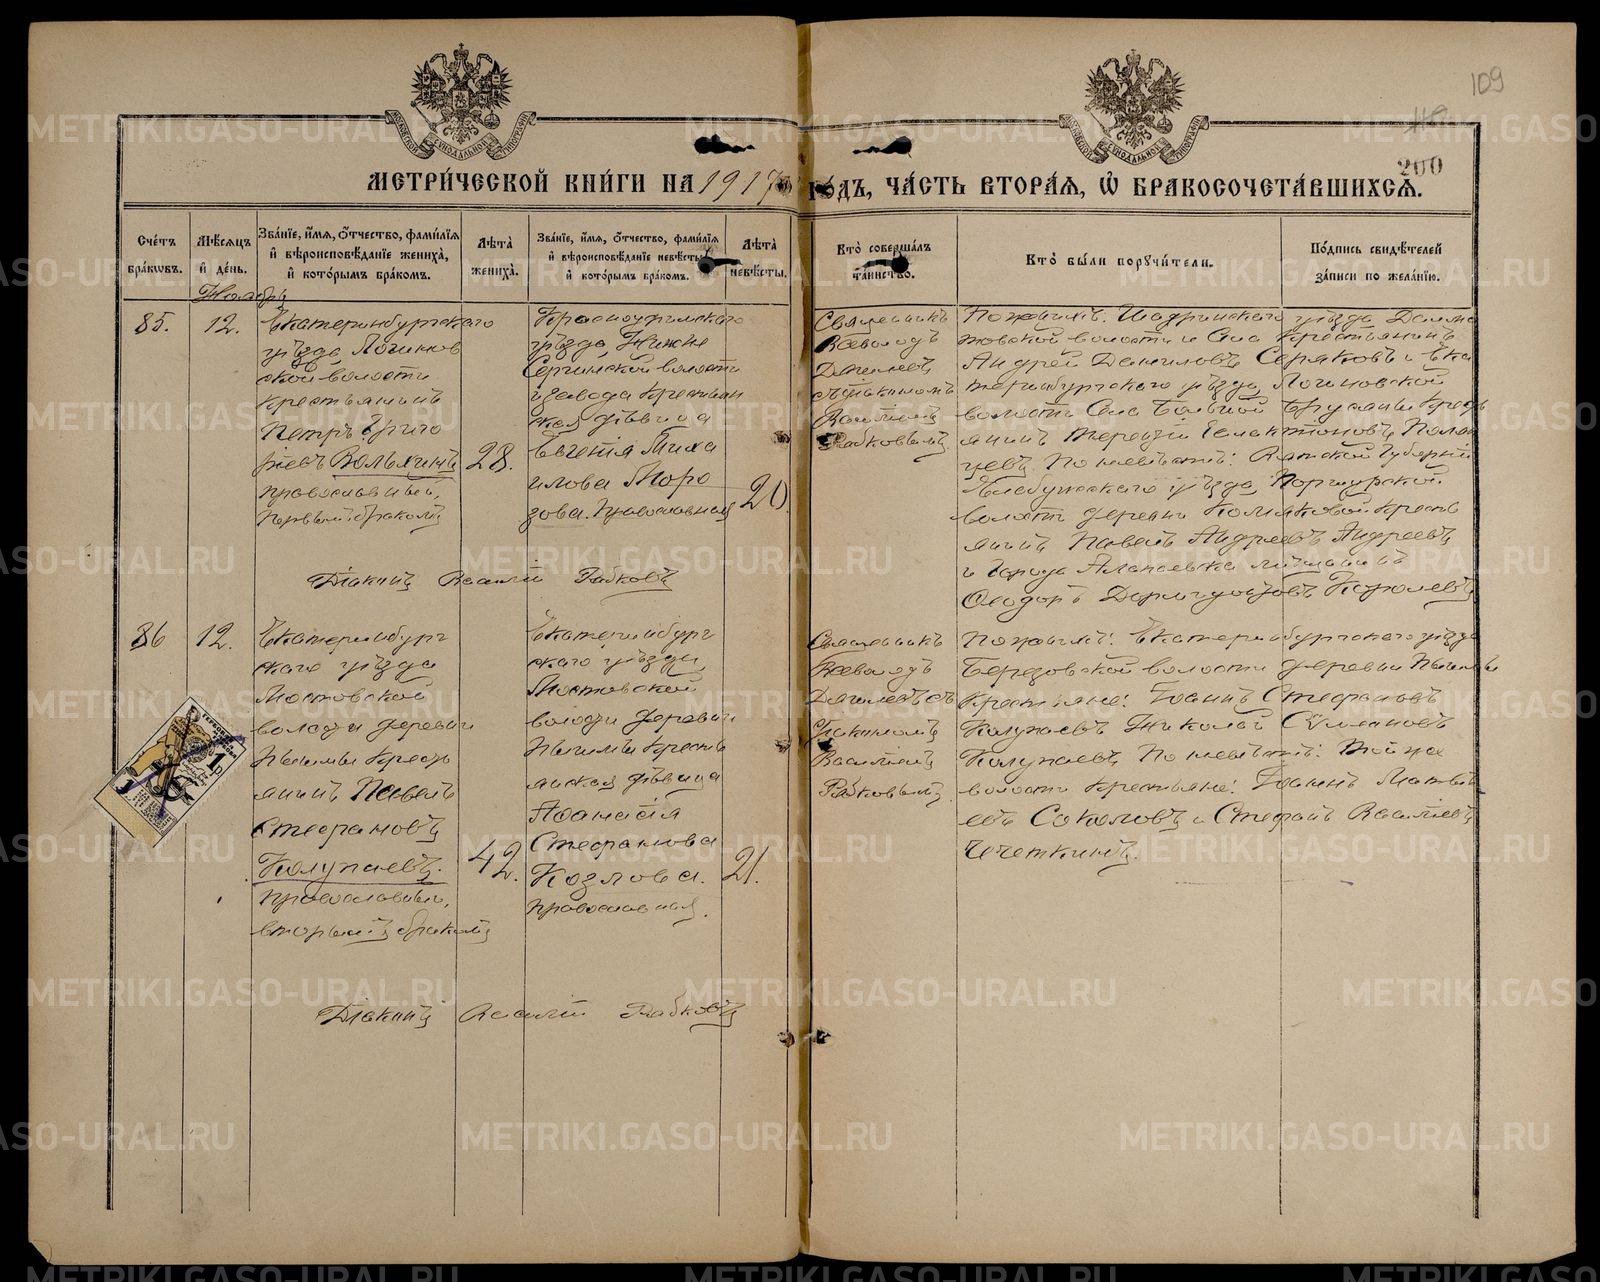 109
200
МЕТРИ́ЧЕСКОЙ КНИ́ГИ НА 1917 ГО́ДЪ, ЧА́СТЬ ВТОРА́Я, Ѡ БРАКОСОЧЕТА́ВШИХСЯ.
Сче́тъ бра́кѡвъ.
Мѣ́сяцъ и́ де́нь.
Зва́нїе, и́мя, ѻ́тчество, фами́лїя и́ вѣроисповѣ́данїе жениха̀, и́ кото́рымъ бра́комъ.
Лѣ́та̀ жениха̀.
Зва́нїе, и́мя, ѻ́тчество, фами́лїя и́ вѣроисповѣ́данїе невѣ́сты, и́ кото́рымъ бра́комъ.
Лѣ́та̀ невѣ́сты.
Кто̀ соверша́лъ та́инство.
Кто̀ бы́ли порꙋчи́тели.
По́дпись свидѣ́телей за́писи по жела́нїю.
Ноябрь
85.
12.
Екатеринбургскаго
уѣзда Логинов
ской волости
крестьянинъ
Петръ Григо
рьевъ Вольхинъ
православный,
первымъ бракомъ
28.
Красноуфимскаго
уѣзда, Нижне
Сергинской волости
и завода крестьян
ская дѣвица
Евгенія Миха
илова Моро
зова. Православная
20.
Священникъ
Всеволодъ
съ діакономъ
Василіемъ
Рябковымъ
По женихѣ: Шадринскаго уѣзда Далма
товской волости и села крестьянинъ
Андрей Даниловъ Серяковъ и Ека
теринбургскаго уѣзда, Логиновской
волости села Большой Брусяны кресть
янинъ Терентій Галактіоновъ Полен
цевъ. По невѣстѣ: Вятской губерніи
Елабужскаго уѣзда,
волости деревни кресть
янинъ Павелъ Андреевъ Андреевъ
и города Алапаевска мѣщанинъ
Ѳеодоръ Королевъ
Діаконъ Василій Рябковъ
86
12.
Екатеринбург
скаго уѣзда
Мостовской
волости деревни
Пышмы кресть
янинъ Павелъ
Стефановъ
Колупаевъ.
православный,
вторымъ бракомъ
42.
Екатеринбург
скаго уѣзда,
Мостовской
волости деревни
Пышмы кресть
янская дѣвица
Аѳанасія
Стефанова
Козлова.
православная.
21.
Священникъ
Всеволодъ
діакономъ
Василіемъ
Рябковымъ
По женихѣ: Екатеринбургскаго уѣзда
Березовской волости деревни Пышмы
крестьяне: Іоаннъ Стефановъ
Колупаевъ Николай
Колупаевъ По невѣстѣ: той же
волости крестьяне: Іоаннъ Матве
евъ Соколовъ и Стефанъ Василіевъ
Чечеткинъ.
Діаконъ Василій Рябковъ
1 р
METRIKI.GASO-URAL.RU